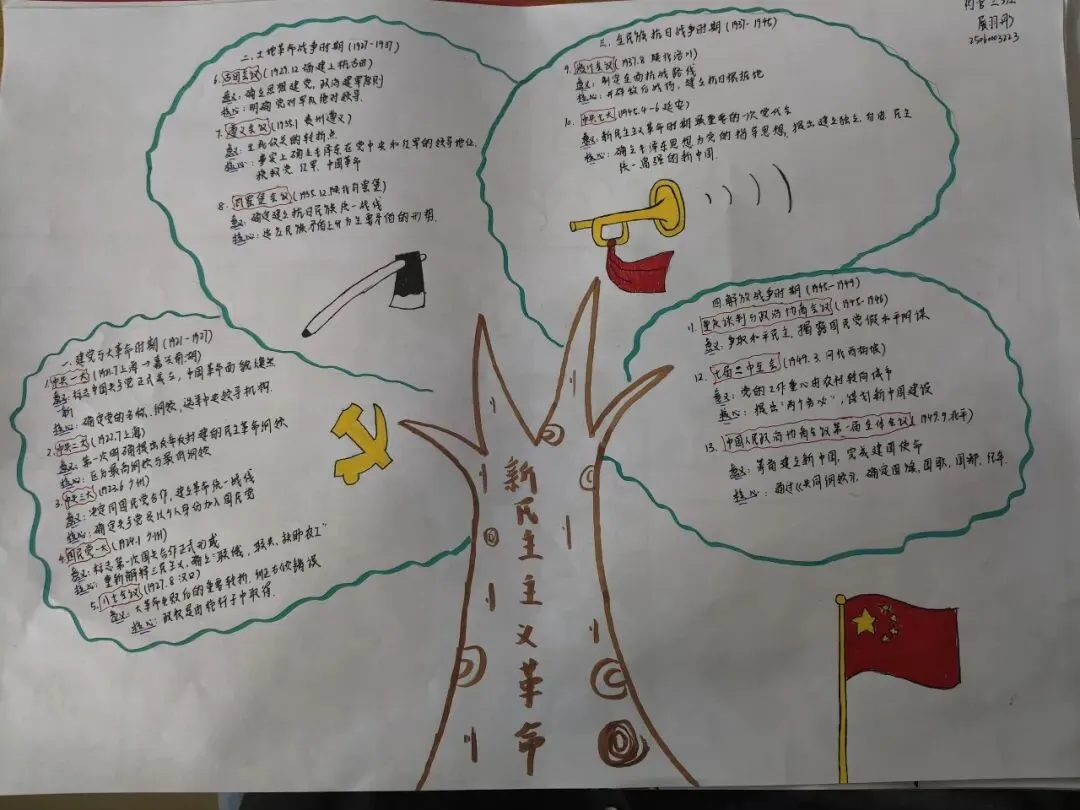 一、建党与大革命时期 (1921-1927)
1. 中共一大 (1921.7 上海→嘉兴南湖)
意义: 标志中国共产党正式成立, 中国革命面貌焕然一新
核心: 确定党的名称、纲领, 选举中央领导机构.
2. 中共二大 (1922.7 上海)
意义: 第一次明确提出反帝反封建的民主革命纲领
核心: 区分最高纲领与最低纲领
3. 中共三大 (1923.6 广州)
意义: 决定同国民党合作, 建立革命统一战线
核心: 确定共产党员以个人身份加入国民党
4. 国民党一大 (1924.1 广州)
意义: 标志第一次国共合作正式形成
核心: 重新解释三民主义, 确立"联俄, 联共, 扶助农工"
5. 八七会议 (1927.8 汉口)
意义: 大革命失败后的重要转折, 纠正右倾错误
核心: 政权是由枪杆子中取得.
二、土地革命战争时期 (1927-1937)
6. 古田会议 (1929.12 福建上杭古田)
意义: 确立思想建党, 政治建军原则
核心: 明确党对军队绝对领导.
7. 遵义会议 (1935.1 贵州遵义)
意义: 生死攸关的转折点.
核心: 事实上确立毛泽东在党中央和红军的领导地位.
挽救党、红军、中国革命
8. 瓦窑堡会议 (1935.12 陕北瓦窑堡)
意义: 确定建立抗日民族统一战线
核心: 民族矛盾上升为主要矛盾的形势.
三、全民族抗日战争时期 (1937-1945)
9. 洛川会议 (1937.8 陕北洛川)
意义: 制定全面抗战路线
核心: 开辟敌后战场, 建立抗日根据地
10. 中共七大 (1945.4-6 延安)
意义: 新民主主义革命时期最重要的一次党代会
核心: 确立毛泽东思想为党的指导思想, 提出建立独立、自由、民主
统一、富强的新中国.
四、解放战争时期 (1945-1949)
11. 重庆谈判与政治协商会议 (1945-1946)
意义: 争取和平民主, 揭露国民党假和平阴谋
12. 七届二中全会 (1949.3 河北西柏坡)
意义: 党的工作重心由农村转向城市
核心: 提出"两个务必", 谋划新中国建设
13. 中国人民政治协商会议第一届全体会议 (1949.9 北平)
意义: 筹备建立新中国, 完成建国使命
核心: 通过《共同纲领》, 确定国旗, 国歌, 国都, 纪年.
新民主主义革命